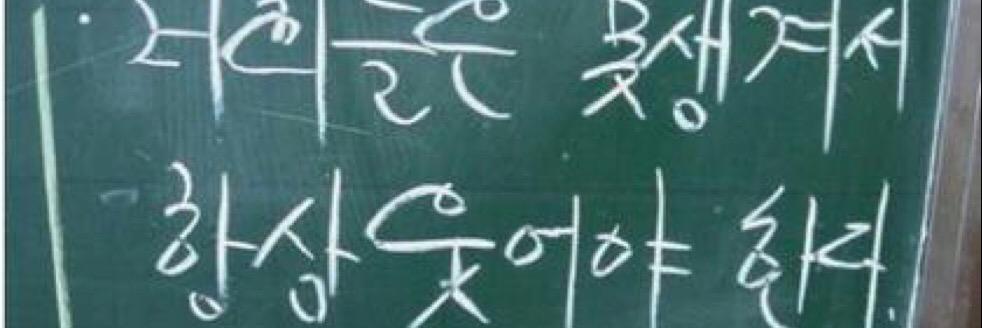 · 너희들은 못생겨서
항상 웃어야 한다.